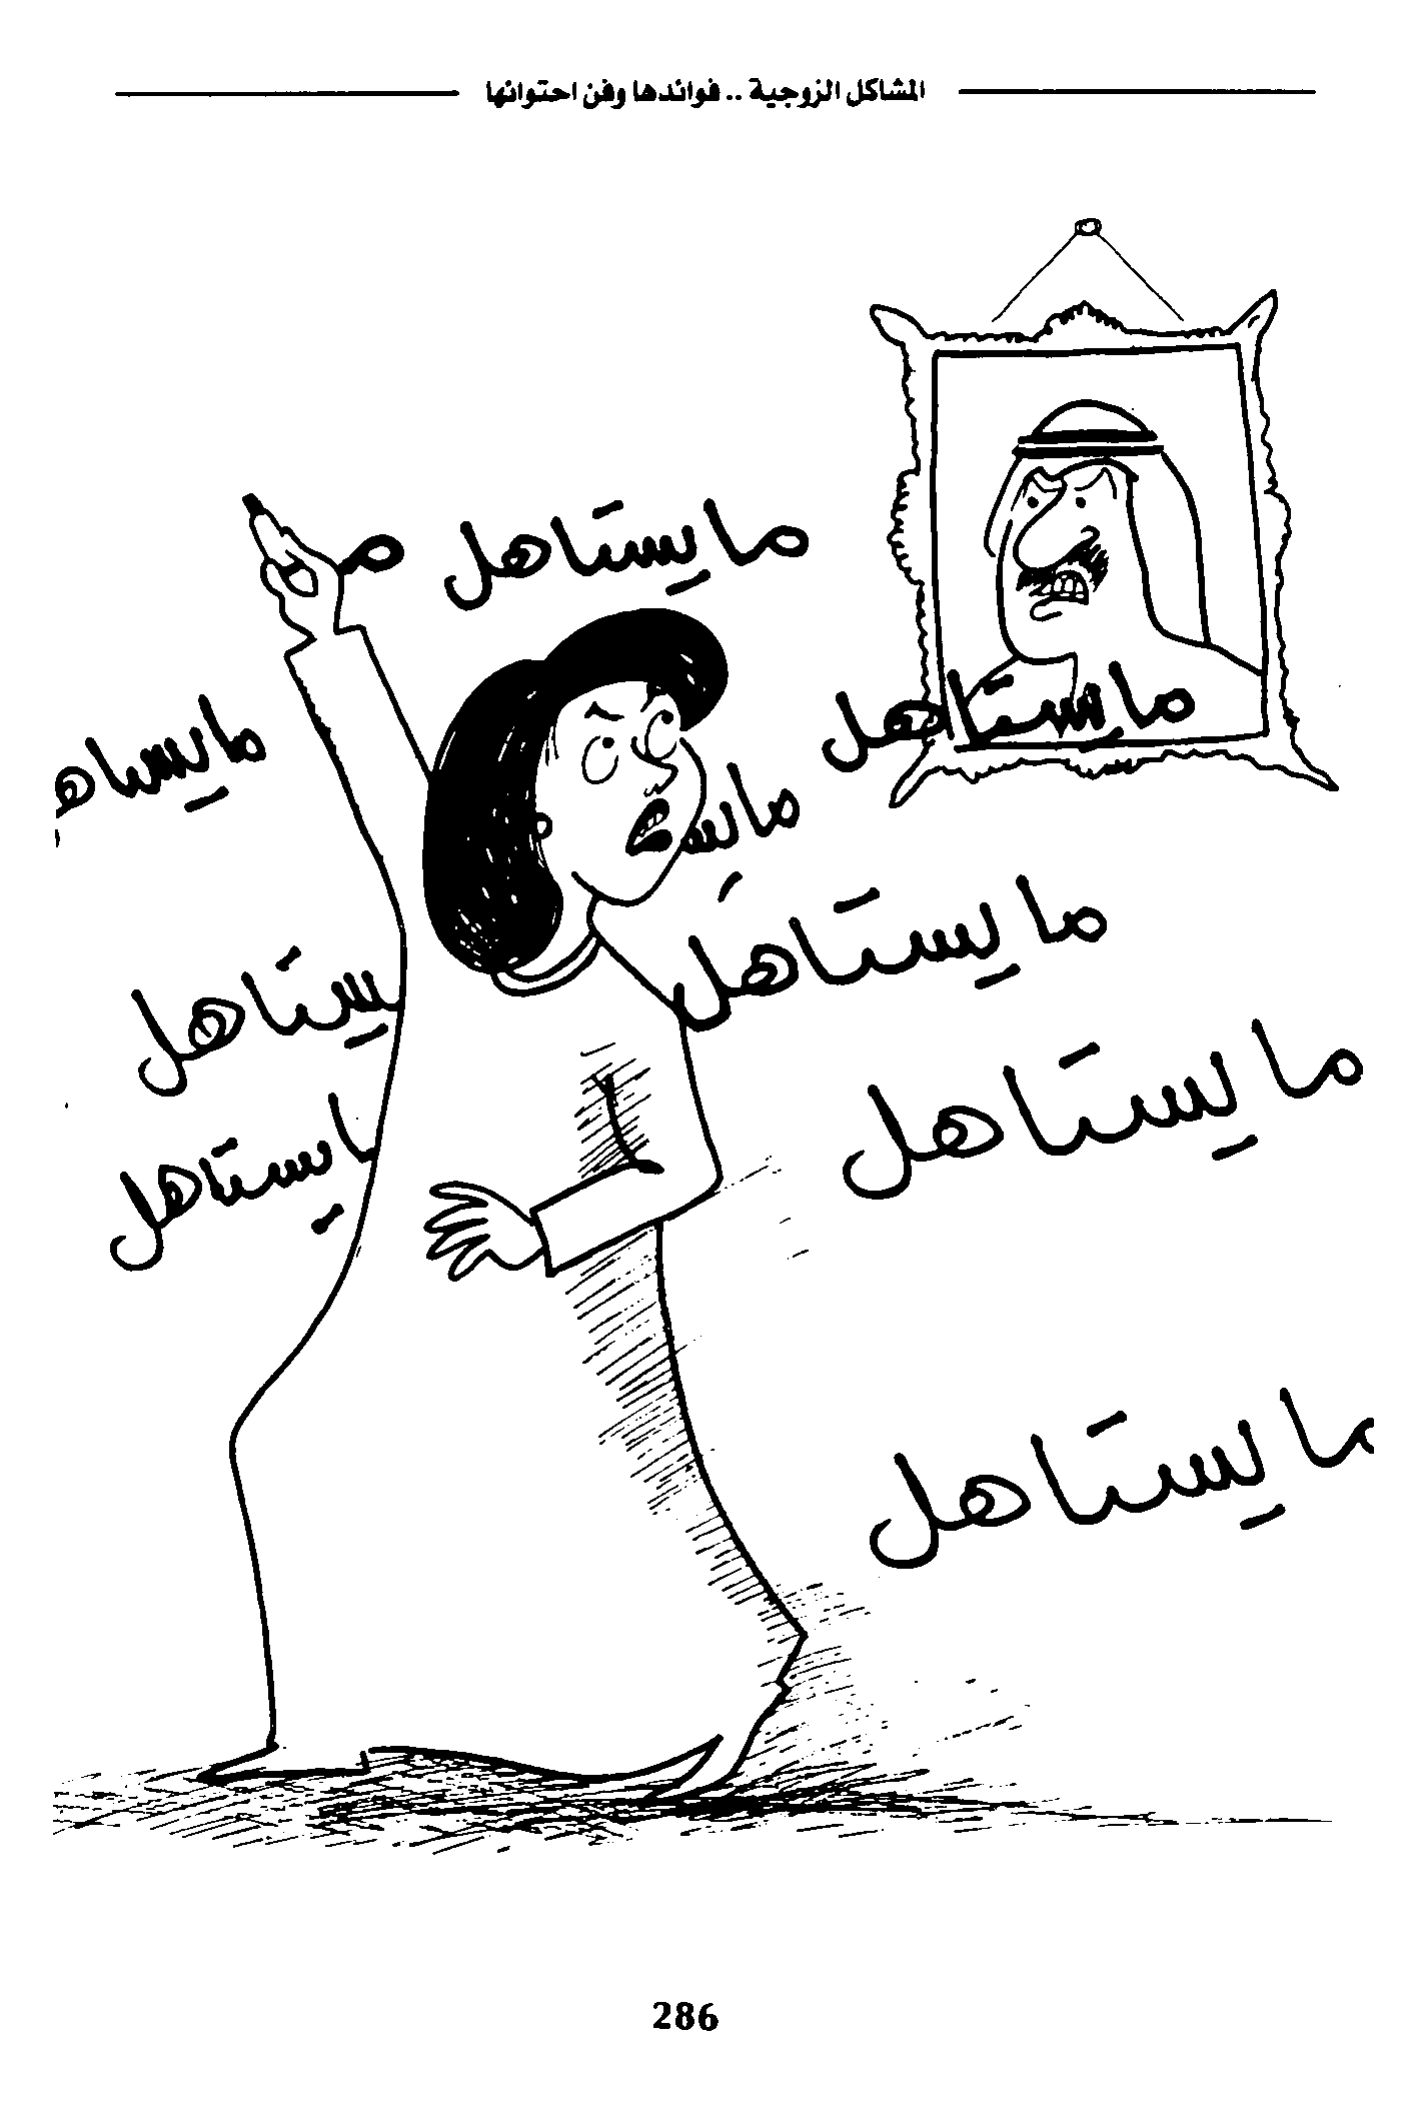 المشاكل الزوجية .. فوائدها وفن احتوائها
ما يستاهل
مـ
ما يستاهل
ما يساه
ما يس
ما يستاهل
يستاهل
ما يستاهل
ا يستاهل
ما يستاهل
286